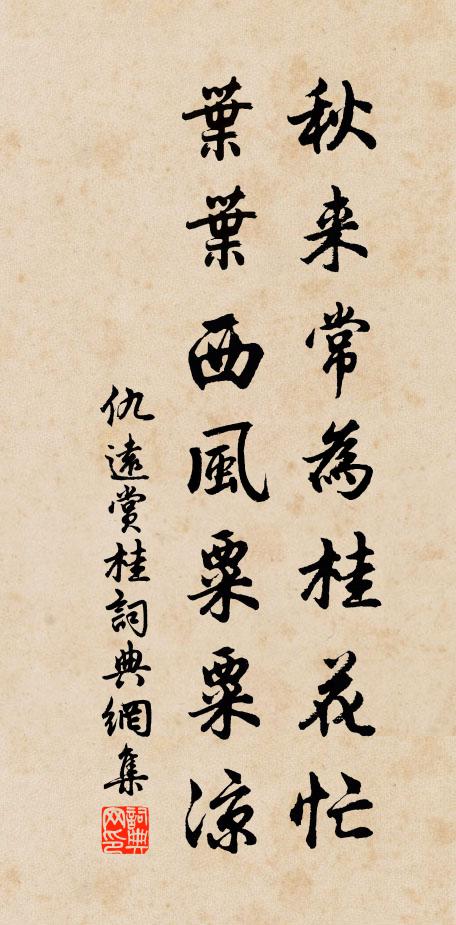 秋来常為桂花忙
葉葉西風粟粟涼
仇遠賞桂詞典網集
詞典网印